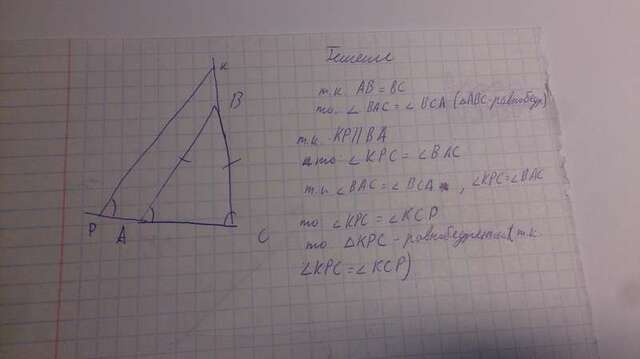 Решение
K
B
P
A
C
т.к. AB = BC
то ∠BAC = ∠BCA (△ABC - равнобедр)
т.к. KP || BA
то ∠KPC = ∠BAC
т.к ∠BAC = ∠BCA, ∠KPC = ∠BAC
то ∠KPC = ∠KCP
то △KPC - равнобедренный, т.к.
∠KPC = ∠KCP)